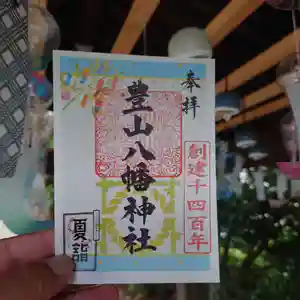 奉拝
創建千四百年
豊山八幡神社
夏詣